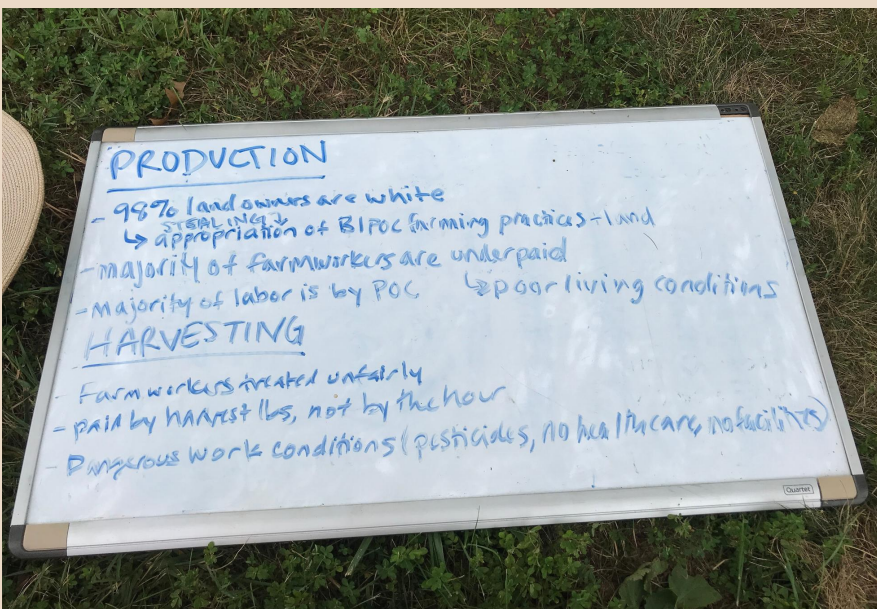 PRODUCTION
- 98% landowners are white
STEALING ↓
↳ appropriation of BIPOC farming practices + land
- majority of farmworkers are underpaid
↳ poor living conditions
- Majority of labor is by POC
HARVESTING
- Farmworkers treated unfairly
- paid by harvest lbs, not by the hour
- Dangerous work conditions (pesticides, no healthcare, no facilities)
Quartet